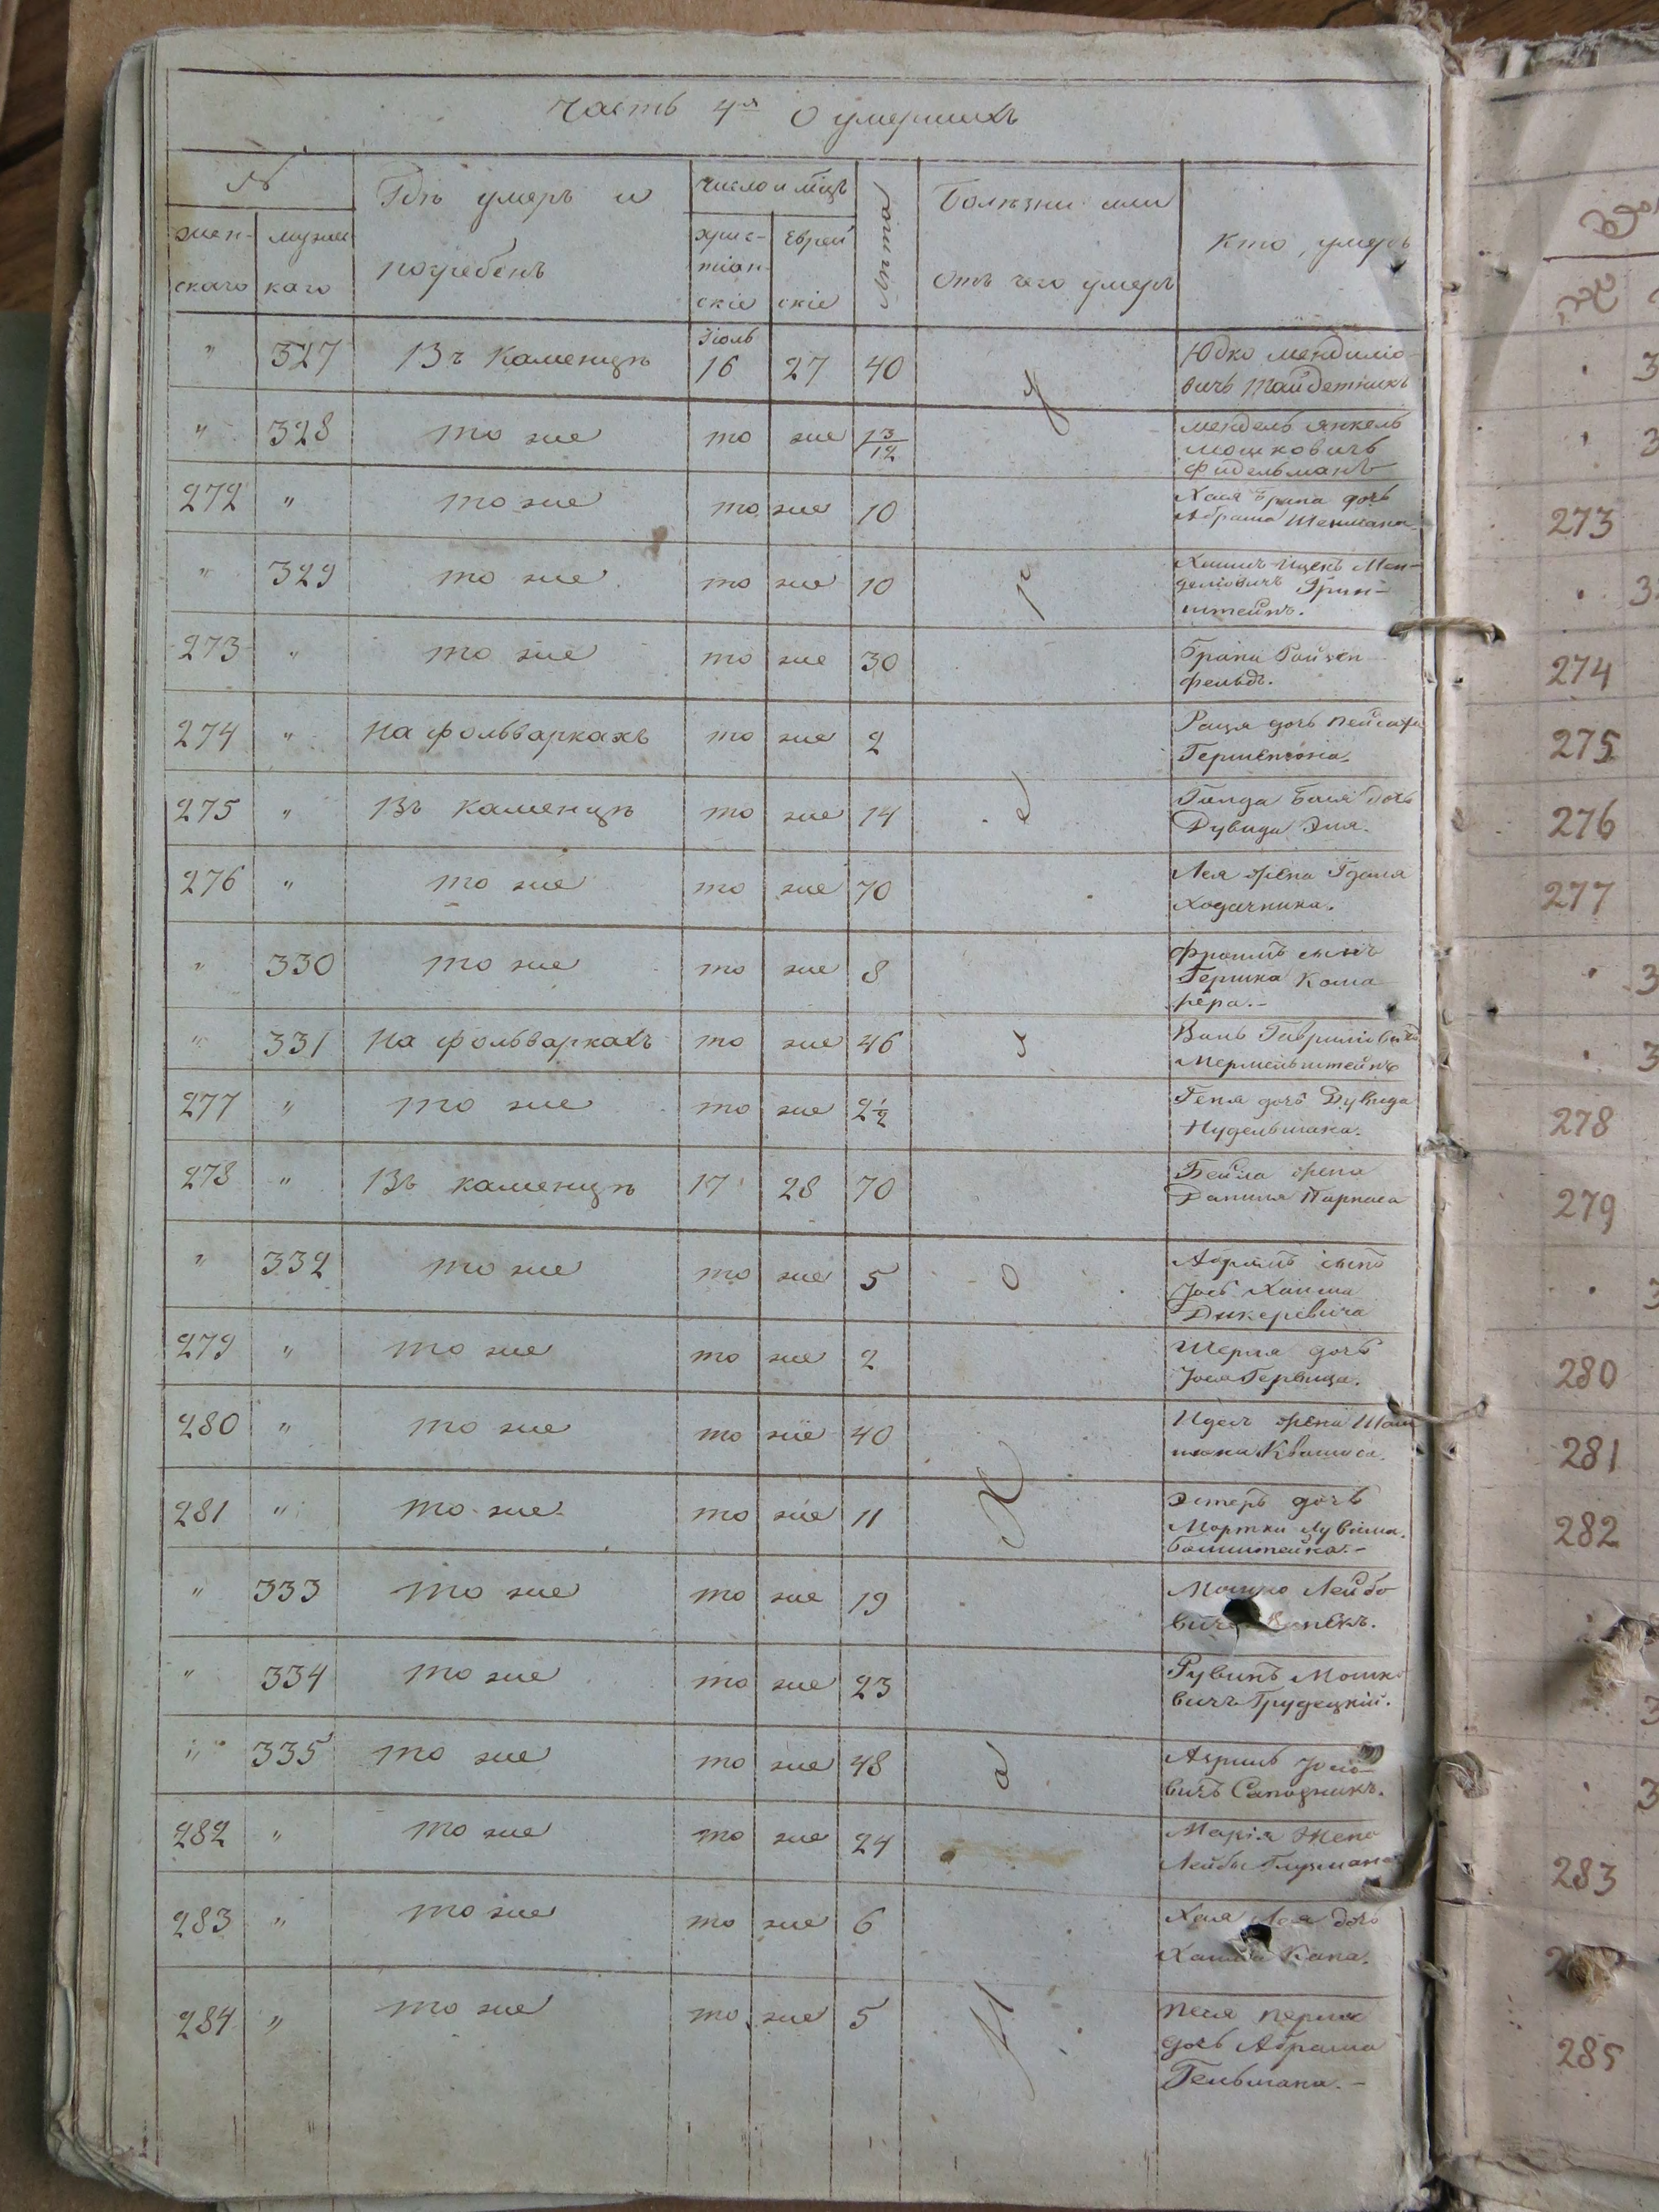 Часть 4я О умершихъ
№ Гдѣ умеръ и погребенъ Число и мцъ Лѣта Болѣзни или отъ чего умеръ Кто умеръ
женскаго мужскаго христіанскіе Еврейскіе
" 327 Въ Каменцѣ Іюль 16 27 40 Юдко Менделіо-
вичъ
" 328 то же то же 1 3/12 Мендель Янкель
Мошковичъ
Фидельманъ
272 " то же то же 10 Хая Брана дочь
Абрама Шенмана.
" 329 то же то же 10 Хаимъ Ицекъ Мен-
деліовичъ Грин-
штейнъ.
273 " то же то же 30 Брана Ройзен
фельдъ.
274 " На фольваркахъ то же 2 Рация дочь Пейсаха
Гершензона.
275 " Въ Каменцѣ то же 14 Голда Бася дочь
Дувида
276 " то же то же 70 Лея жена Гдаля
Ходачника.
" 330 то же то же 8 Фроимъ сынъ
Гершка Кома
рера.-
" 331 На фольваркахъ то же 46 Волъ Гавриліовичъ
Мермельштейнъ
277 " то же то же 2 1/2 Геня дочь Дувида
Нудельмана.
278 " Въ Каменцѣ 17 28 70 Бейла жена
Даниля Парнаса
" 332 то же то же 5 Абрамъ сынъ
Іось Хаима
Дикеревича
279 " то же то же 2 Шерля дочь
Іося Гервица.
280 " то же то же 40 Идесъ жена
281 " то же то же 11 Эстеръ дочь
Мортки
" 333 то же то же 19 Мошко Лейбо
вичъ
" 334 то же то же 23 Рувинъ Мошко
вичъ Грудецкій.
" 335 то же то же 48 Азриль Іосіо-
вичъ Сапожникъ.
282 " то же то же 24 Марія Жена
Лейбы Глузмана
283 " то же то же 6 Хая Лея дочь
Хаима Кана.
284 " то же то же 5 Песя Перля
дочь Абрама
Гельмана.-
273
274
275
276
277
278
279
280
281
282
283
285